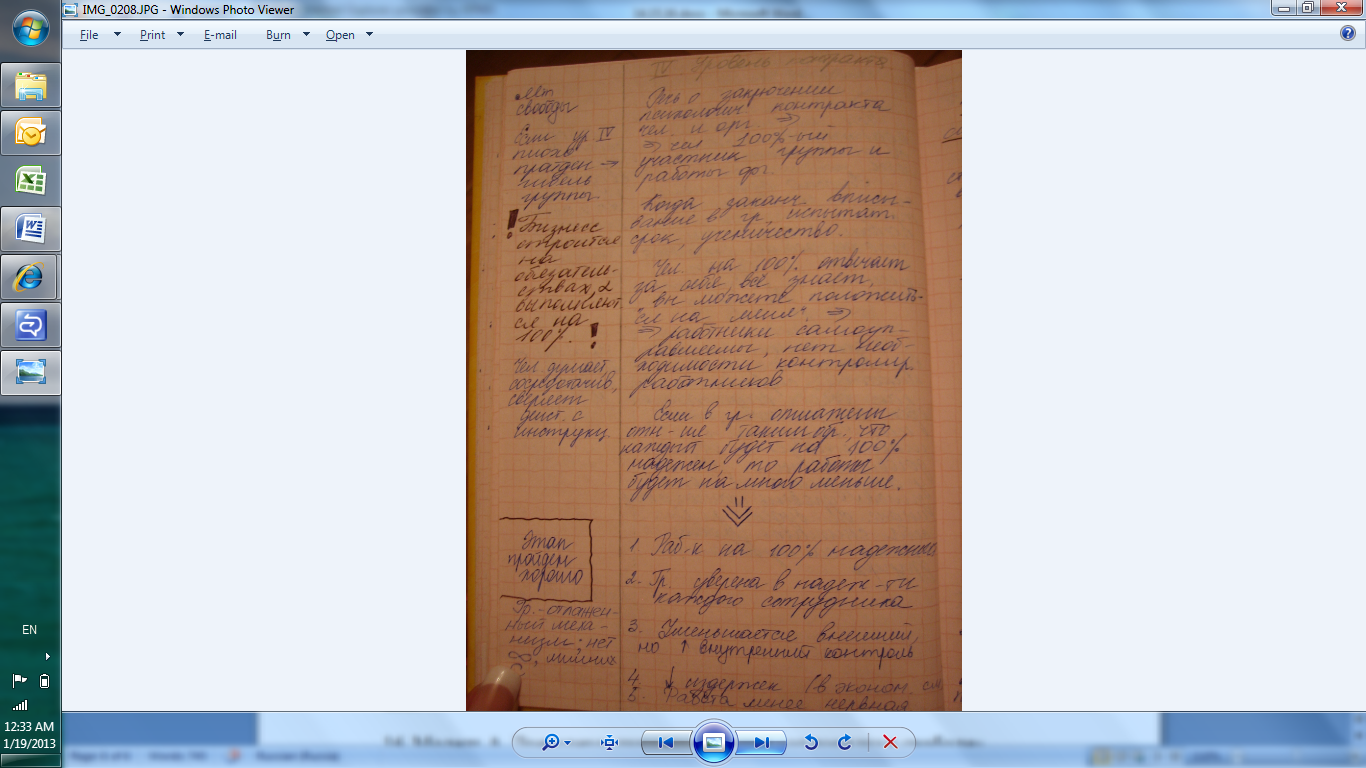 IMG_0208.JPG - Windows Photo Viewer
File Print E-mail Burn Open
IV Уровень контракта
свободы
Если ур. IV
плохо
пройден →
гибель
группы.
! Бизнес
строится
на
обязатель-
ствах,
выполняют
ся на
100%. !
Чел думает,
сосредоточив,
сверяет
дейст. с
инструкц.
Этап
пройден
хорошо
Гр. - отлажен-
ный меха-
низм; нет
лишних
Речь о заключении
психологич контракта
чел. и орг. ⇒
⇒ чел 100%-ый
участник группы и
работы
Когда заканч вписы-
вание в гр., испытат.
срок, ученичество.
Чел. на 100% отвечает
за себя, все знает,
"вы можете положить-
ся на меня". ⇒
⇒ работники самоуп-
равляемы, нет необ-
ходимости контролир.
работников
Если в гр. отлажены
отн-ия таким обр., что
каждый будет на 100%
надежен, то работы
будет на много меньше.
1 Раб-к на 100% надежный
2. Гр. уверена в надеж-ти
каждого сотрудника
3. Уменьшается внешний,
но ↑ внутренний контроль
4. ↓ издержек (в эконом.
5. Работа менее нервная
EN
12:33 AM
1/19/2013